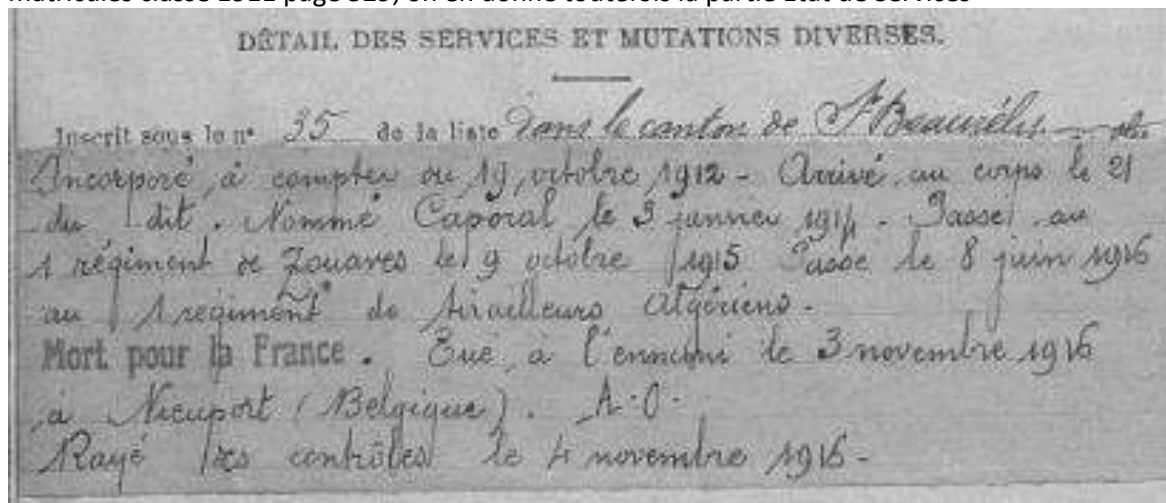 matricules classe 1911 page 529, on en donne toutefois la partie Etat de services
DÉTAIL DES SERVICES ET MUTATIONS DIVERSES.
Inscrit sous le n° 35 de la liste dans le canton de St Beauzély
Incorporé à compter du 19 octobre 1912 - Arrivé au corps le 21
du dit. Nommé Caporal le 3 janvier 1914 - Passé au
1 régiment de Zouaves le 9 octobre 1915 Passé le 8 juin 1916
au 1 régiment de tirailleurs Algériens -
Mort pour la France. Tué à l'ennemi le 3 novembre 1916
à Nieuport (Belgique). A.O.
Rayé des contrôles le 4 novembre 1916 -